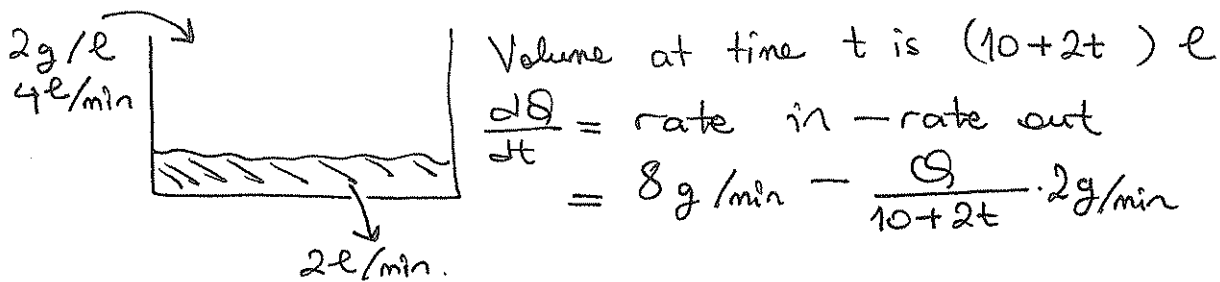 2g/ℓ
4ℓ/min
2ℓ/min.
Volume at time t is (10+2t) ℓ
dQ/dt = rate in - rate out
= 8g/min - Q/(10+2t) · 2g/min